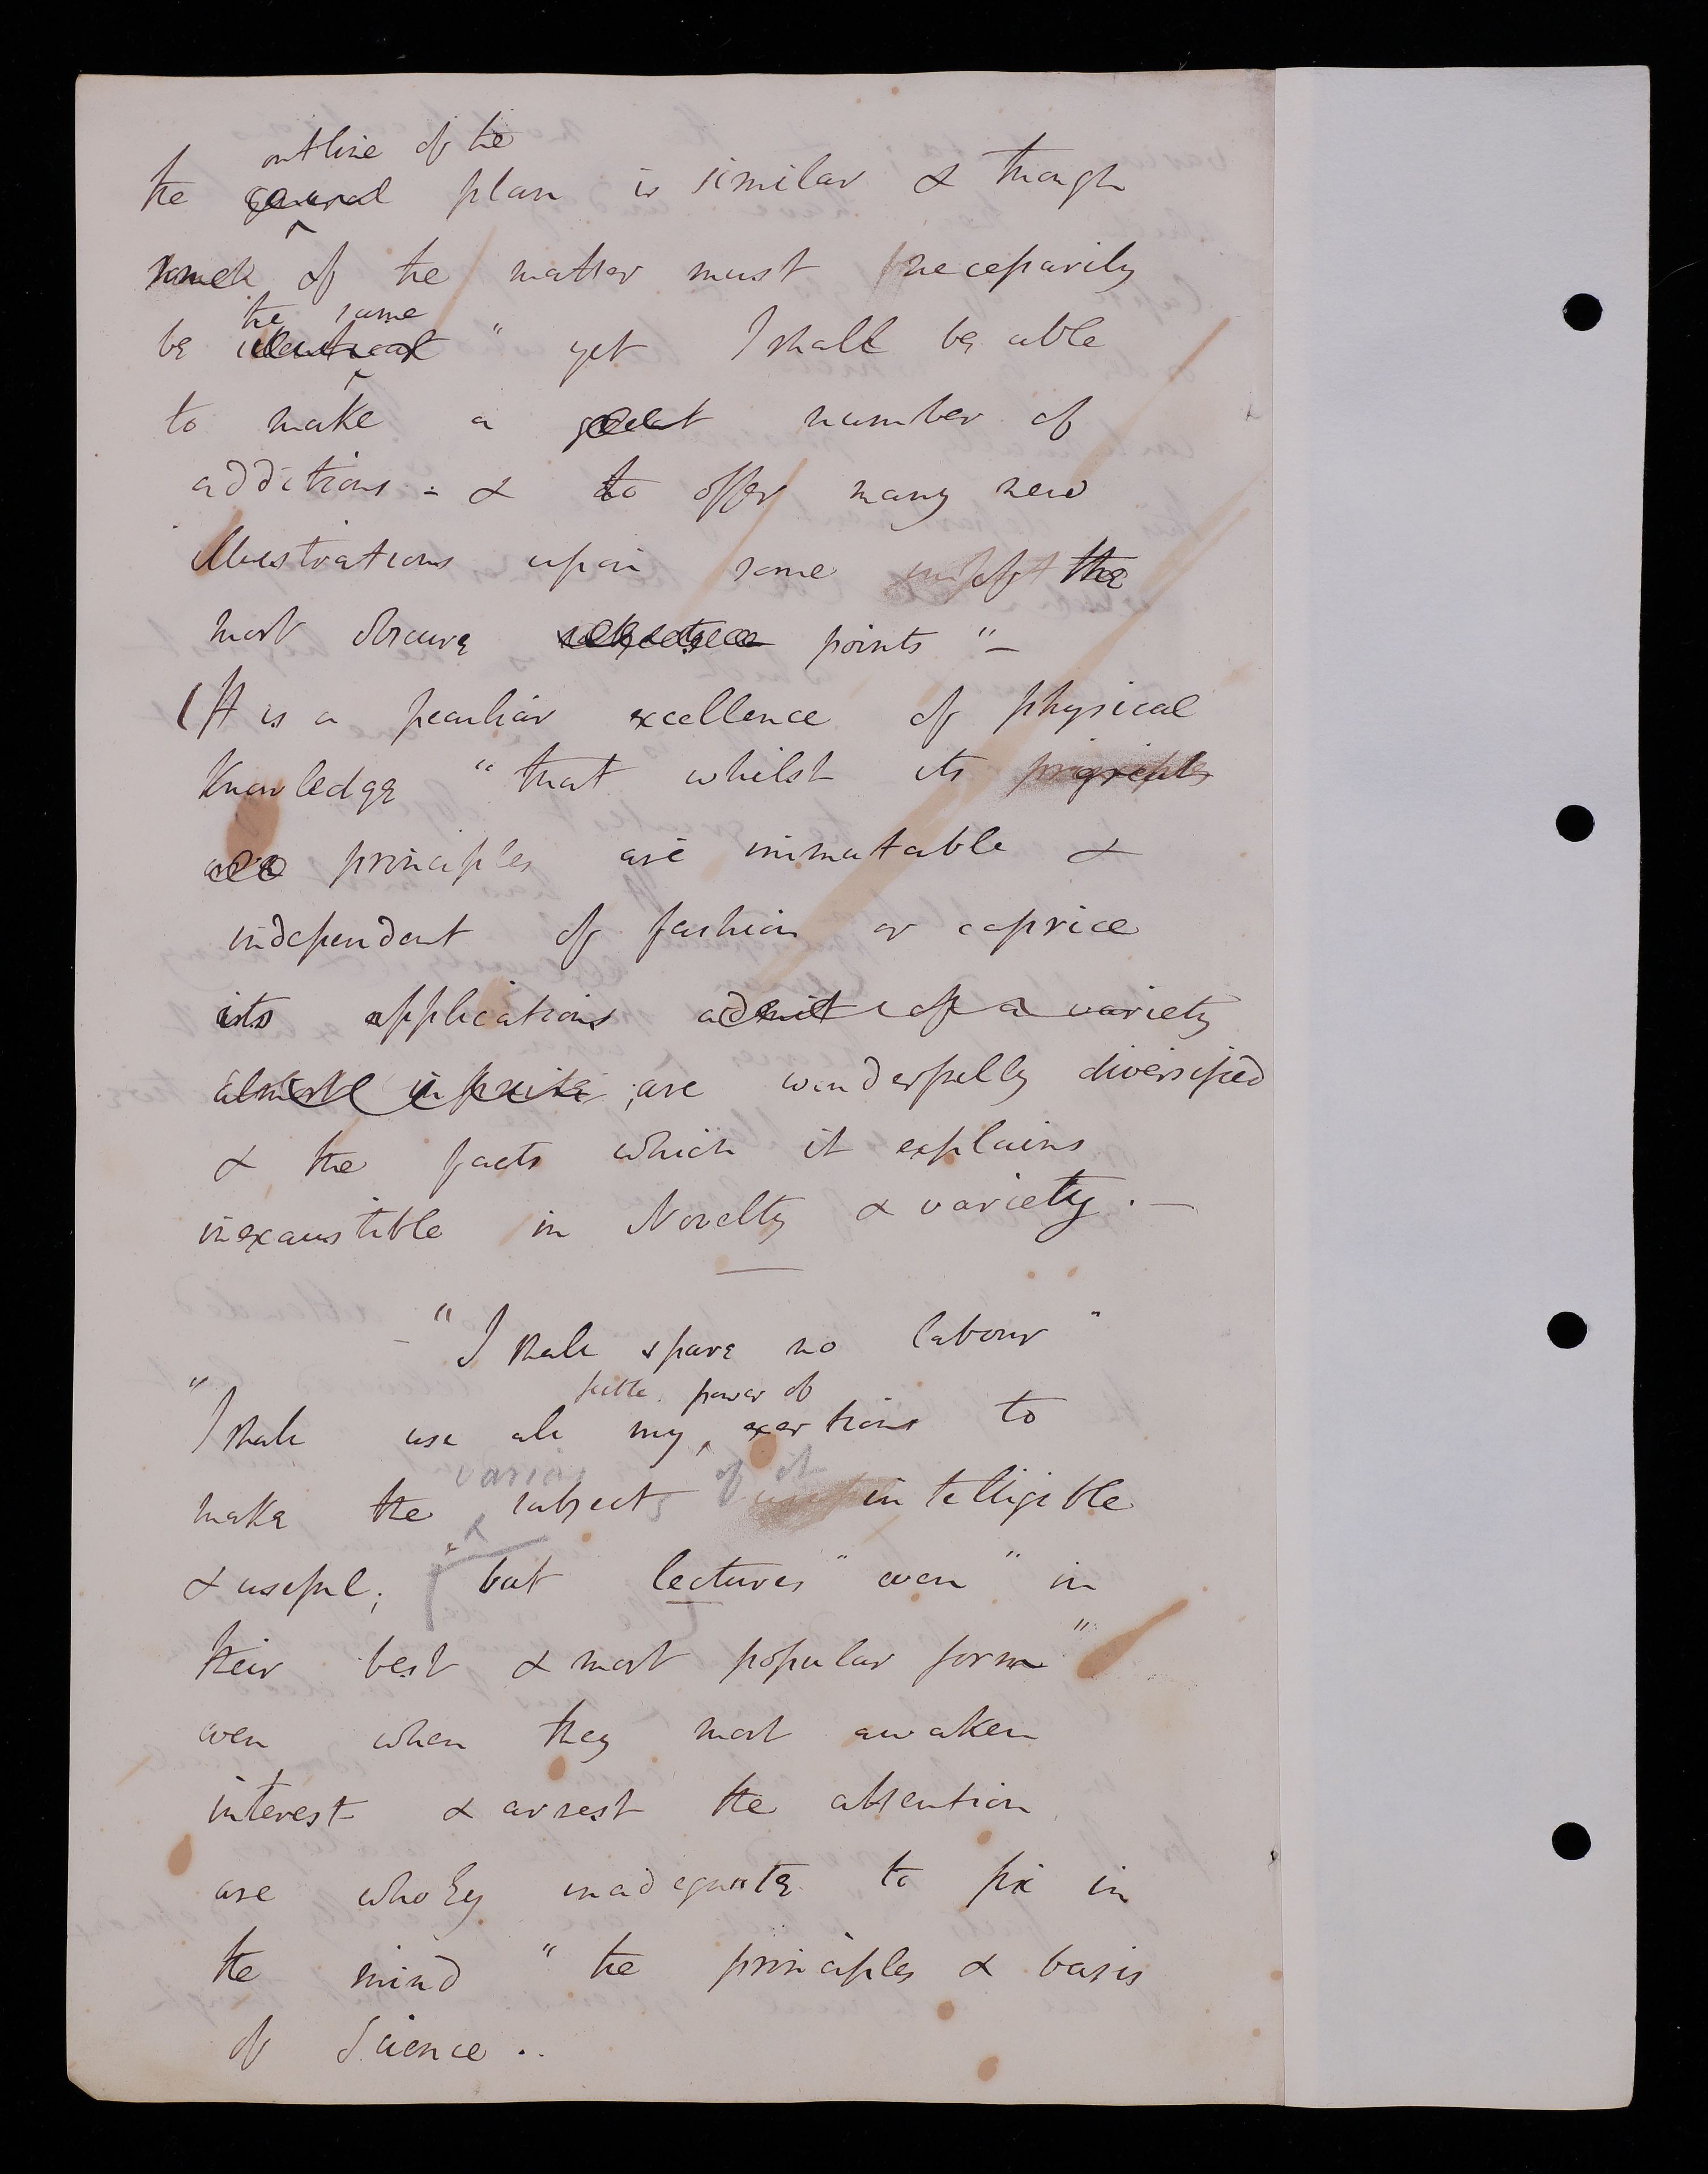 outline of the
the general plan is similar & though
much of the matter must necessarily
the same
be identical " yet I shall be able
to make a great number of
additions - & to offer many new
illustrations upon some of the
most obscure points " —
(It is a peculiar excellence of physical
Knowledge "that whilst its principles
are principles are immutable &
independent of fashion or caprice
its applications admit of a variety
almost infinite are wonderfully diversified
& the facts which it explains
inexaustible in Novelty & variety. —
- "I shall spare no labour "
feeble power of
"I shall use all my exertions to
various of it
make the subjects intelligible
& useful; "but lectures " even " in
their best & most popular form "
even when they most awaken
interest & arrest the attention
are wholly inadequate to fix in
the mind " the principles & basis
of Science ..